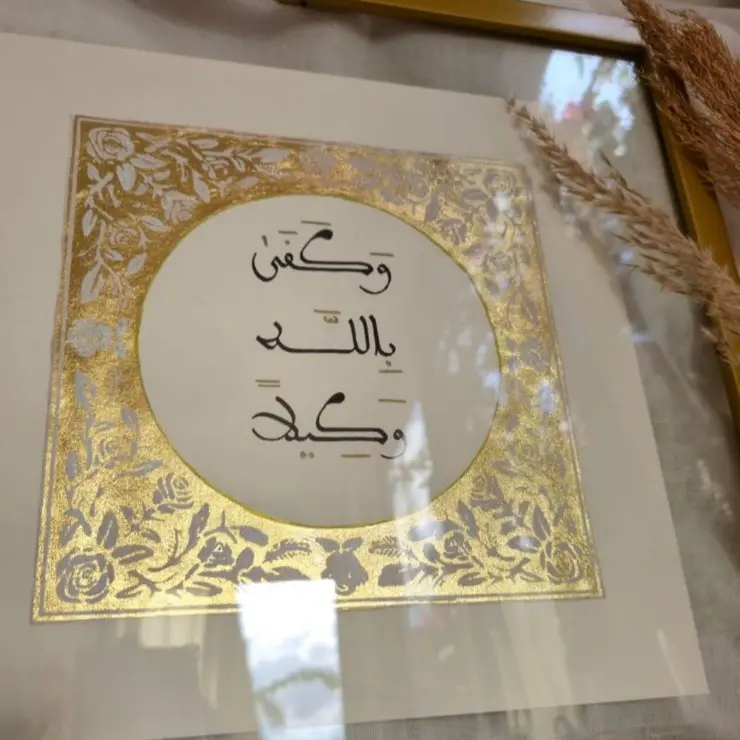 وَكَفَىٰ
بِاللَّهِ
وَكِيلًا